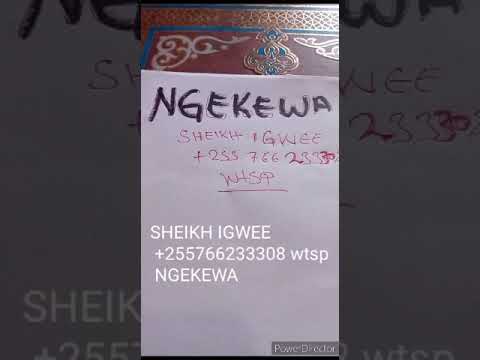 NGEKEWA
SHEIKH IGWEE
+255 766 233308
WTSP
SHEIKH IGWEE
+255766233308 wtsp
NGEKEWA
SHEIKH
+2557
NGEKEWA
PowerDirector